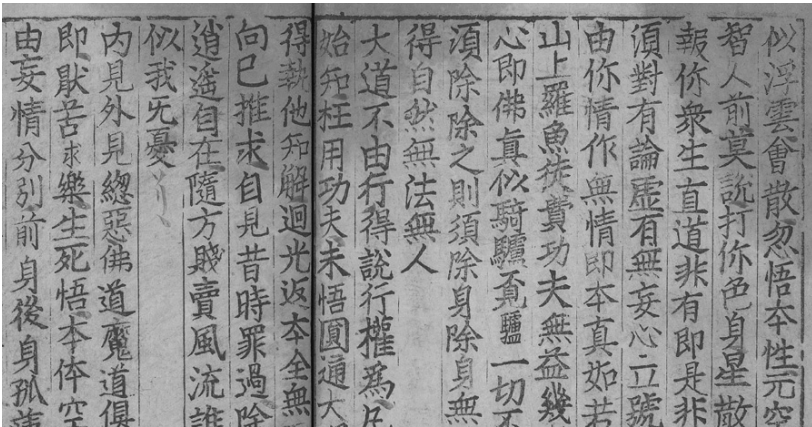 似浮雲會散忽悟夲性元空
智人前莫說打你色身星散
報你衆生直道非有即是非
須對有論虛有無妄心立號
由你情作無情即夲真如若
山上羅魚徒費功夫無益幾
心即佛真似騎驢覓驢一切不
須除除之則須除身除身無
得自然無法無人
大道不由行得說行權爲凡
始知枉用功夫未悟圓通大
得執他知解迴光返夲全無
向己推求自見昔時罪過除
逍遥自在隨方賤賣風流誰
似我旡憂
內見外見緫惡佛道魔道俱
即厭苦求樂生死悟夲体空
由妄情分别前身後身孤